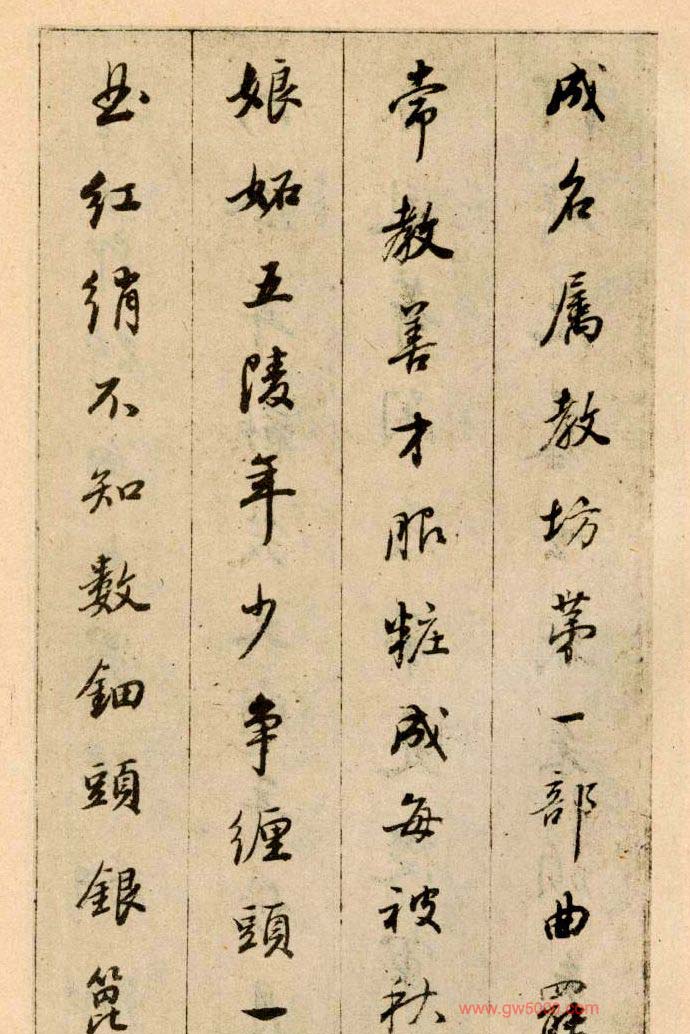 成名属教坊第一部曲罷
常教善才服粧成每被秋
娘妬五陵年少争纏頭一
曲红绡不知數鈿頭銀篦
www.gw5000.com